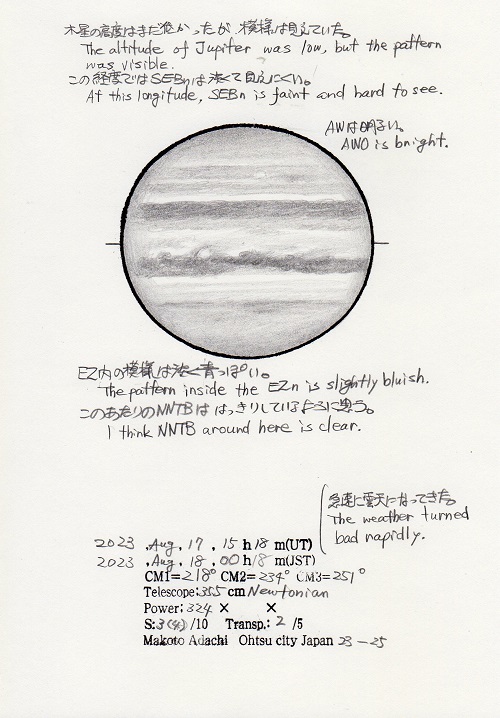 木星の高度はまだ低かったが、模様は見えていた。
The altitude of Jupiter was low, but the pattern
was visible.
この経度ではSEBnは淡くて見えにくい。
At this longitude, SEBn is faint and hard to see.
AWは明るい。
AWO is bright.
EZ内の模様は淡く青っぽい。
The pattern inside the EZn is slightly bluish.
このあたりのNNTBははっきりしているように思う。
I think NNTB around here is clear.
急速に曇天になってきた。
The weather turned
bad rapidly.
2023 .Aug. 17 , 15 h 18 m(UT)
2023 .Aug. 18 , 00 h 18 m(JST)
CM1=218° CM2=234° CM3=251°
Telescope:355 cm Newtonian
Power: 324 × ×
S:3(4)/10 Transp.: 2 /5
Makoto Adachi Ohtsu city Japan 23-25